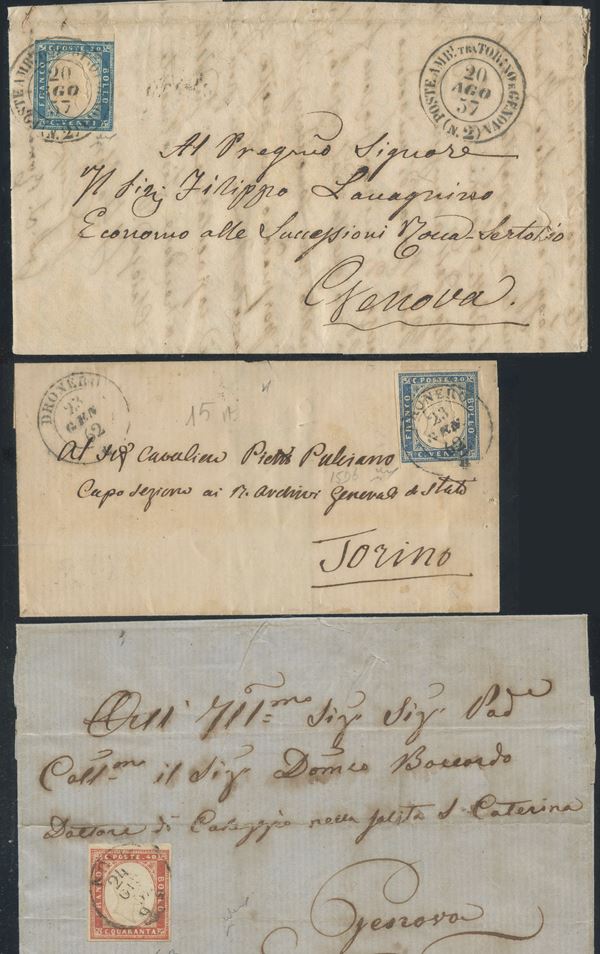 C. POSTE 20
FRANCO
BOLLO
C. VENTI
20
AGO
57
(N. 2)
POSTE AMB. TRA TORINO E GENOVA
20
AGO
57
(N. 2)
Al Pregmo Signore
Il Sig. Filippo Lavagnino
Economo alle Successioni Rocca-Sertorio
Genova.
DRONERO
23
GEN
62
15
C. POSTE 20
FRANCO
BOLLO
C. VENTI
DRONERO
23
GEN
62
Al Sigr Cavaliere Pietro
Capo Sezione ai R. Archivi Generali di Stato
Torino
All' Illmo Sigr. Sigr. Pad
Collmo il Sigr. Domco Boccardo
Dottore di Collegio nella salita S Caterina
C. POSTE 40
FRANCO
BOLLO
C. QUARANTA
24
Genova